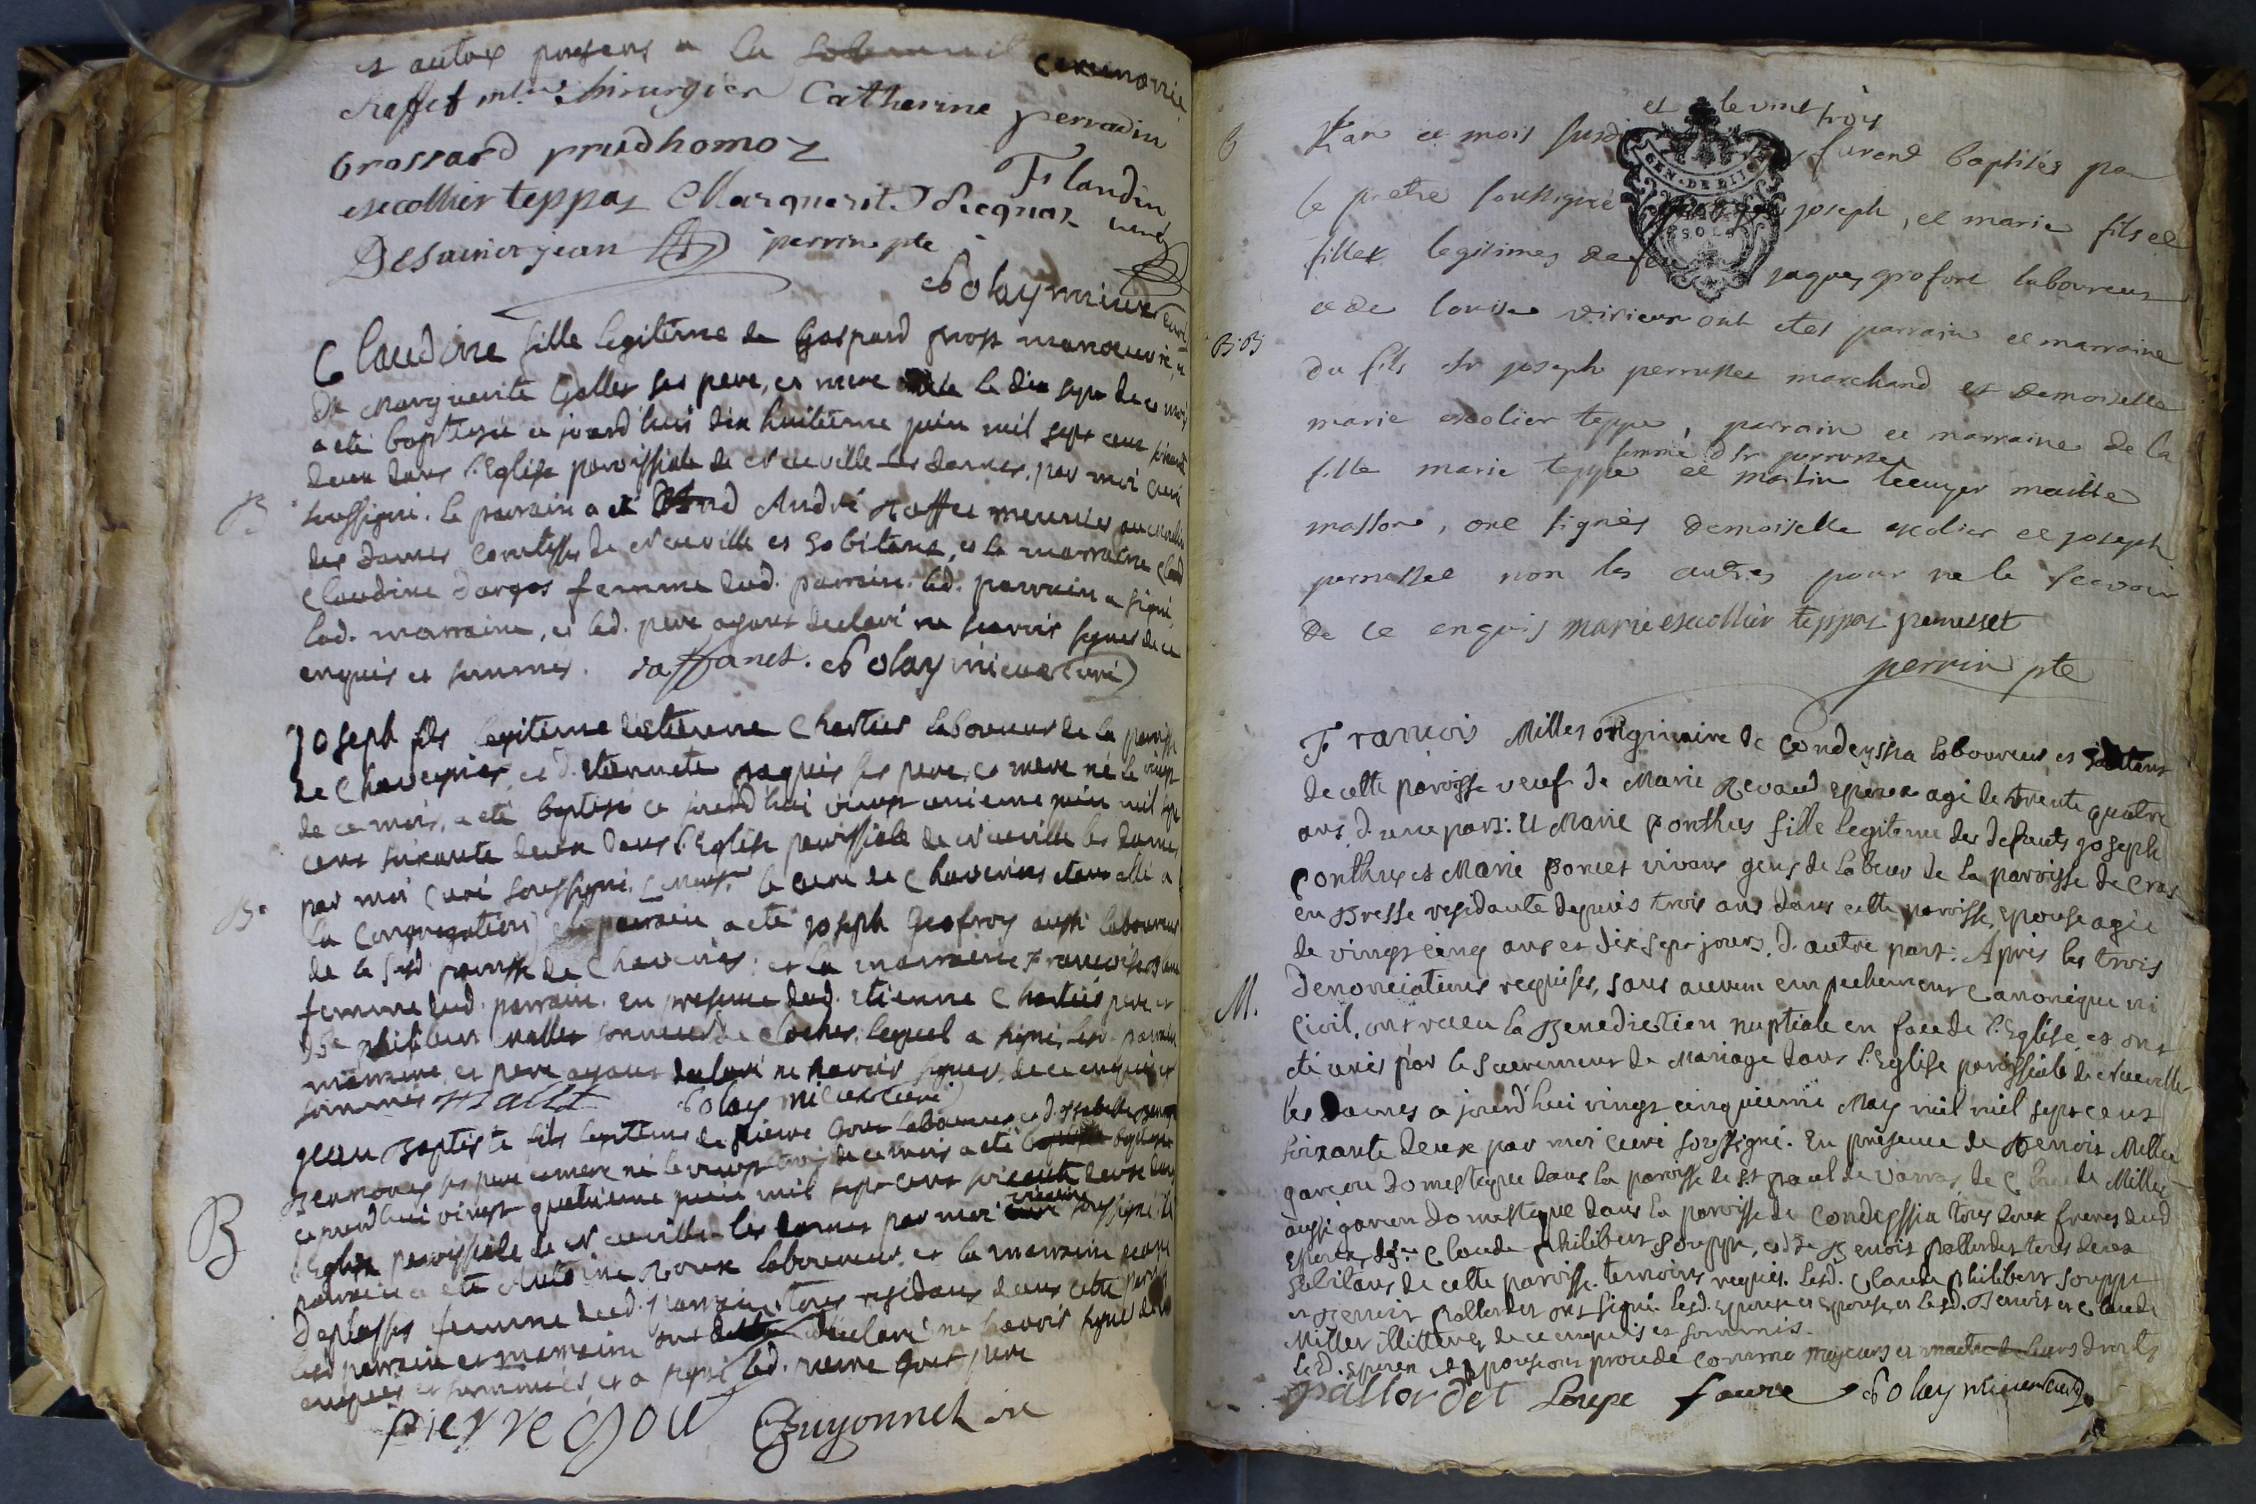 et autres presens a la ceremonie
raffet mtre chirurgien Catherine perradin
brossard prudhomoz Flandrin
escollier teppaz Marguerit
Desainjean perrin ptre
Polaymieux curé
Claudine fille legitime de Gaspard prost manoeuvre, et
de Marguerite Goller ses pere, et mere née le dix sept de ce mois
a eté baptisée ce jourd'hui dix huitieme juin mil sept cent soixante
deux dans l'Eglise paroissiale de Neuville les dames, par moi curé
B. soussigné. le parrain a été André raffet meunier au moulin
des Dames Comtesses de Neuville et habitant, et la marraine
Claudine dargas femme dud. parrain. led. parrain a signé,
lad. marraine, et led. pere ayant declaré ne scavoir signer de ce
enquis et sommés. raffanet. Polaymieux curé
Joseph fils legitime d'etienne Chartier laboureur de la paroisse
de Chaveyriat, et d'etiennete paquis ses pere, et mere né le vingt
de ce mois, a eté baptisé ce jourd'hui vingt unieme juin mil sept
cent soixante deux dans l'Eglise paroissiale de Neuville les dames
par moi curé soussigné, le curé de Chaveriat etant allé a
B. la congregation) le parrain a eté joseph Geofroy aussi laboureur
de la susd. paroisse de Chaveriat; et la marraine Francoise
femme dud. parrain. en presence dud. etienne Chartier pere et
de philibert mallet sonneur de cloches, lequel a signé, lesd. parrain
marraine, et pere ayant declaré ne scavoir signer, de ce enquis et
sommés mallet Polaymieux curé
jean Baptiste fils legitime de pierre Goux laboureur et d'isabelle
ses pere et mere né le vingt trois de ce mois a eté baptisé
ce jourd'hui vingt quatrieme juin mil sept cent soixante deux dans
B l'Eglise paroissiale de Neuville les dames par moi vicaire soussigné le
parrain a eté Antoine Roux laboureur, et la marraine
Deplasses femme dud. parrain, tous residans dans cette paroisse
lesd parrain et marraine ont declaré ne scavoir signer de ce
enquis et sommés, et a signé led. pierre Goux pere
pierre Gou Guyonnet vic
et le vint trois
B L'an et mois susdits furent baptisés par
le pretre soussigné joseph, et marie fils et
filles legitimes de feu jaques grofort laboureur
B.B. et de louise virieux ont etes parrain et marraine
du fils sr joseph perrusset marchand et demoiselle
marie escolier teppe, parrain et marraine de la
femme dSr perrusset
fille marie teppe et martin lecuyer maitre
masson, ont signés demoiselle escolier et joseph
perrusset non les autres pour ne le scavoir
de ce enquis marie escollier teppaz perrusset
perrin ptre
Francois Millet originaire de Condeyssia laboureur et habitant
de cette paroisse veuf de Marie Revaud epoux agé de trente quatre
ans, d'une part: et Marie Ponthus fille legitime des defunts joseph
Ponthus et Marie Poncet vivans gens de labeur de la paroisse de Cras
en Bresse residante depuis trois ans dans cette paroisse, epouse agée
de vingt cinq ans et dix sept jours, d'autre part: Après les trois
M. denonciations requises, sans aucun empechement canonique ni
civil, ont reçu la Benediction nuptiale en face de l'Eglise, et ont
eté unis par le sacrement de Mariage dans l'Eglise paroissiale de Neuville
les Dames a jourd'hui vingt cinquieme May mil mil sept cent
soixante deux par moi curé soussigné. En présence de Benoit Millet
garcon domestique dans la paroisse de St paul de Varras, de Claude Millet
aussi garcon domestique dans la paroisse de Condeyssia tous deux freres dud
epoux, de Sr Claude philibert Souppe, et de Benoit pallordet tous deux
habitans de cette paroisse. temoins requis. Lesd. Claude philibert Souppe
et Benoit pallordet ont signé lesd. epoux et epouse, et lesd. Benoit et Claude
Millet illitteres de ce enquis et sommés.
lesd. epoux et epouse ont procedé comme majeurs et maitres de leurs droits
pallordet Soupe faure Polaymieux curé